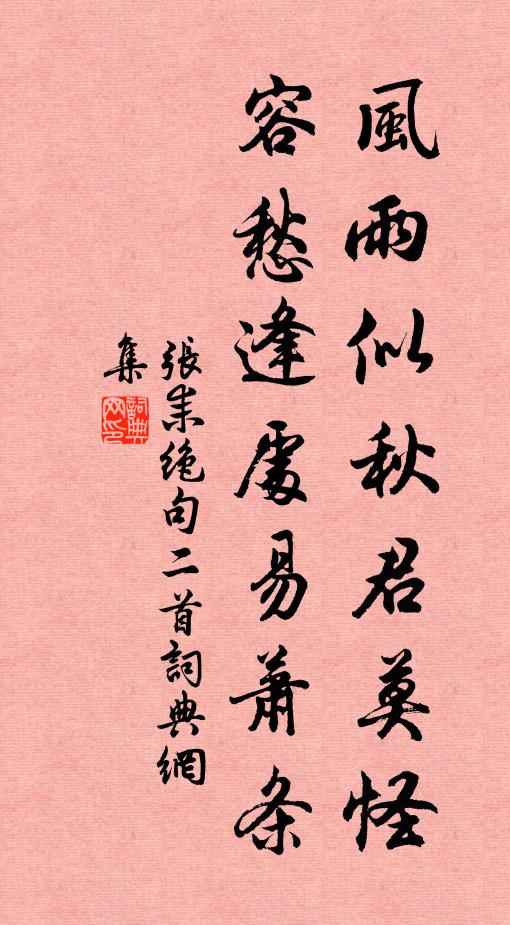 風雨似秋君莫怪
容愁逢處易蕭条
張耒絶句二首詞典網
集
詞典
网印